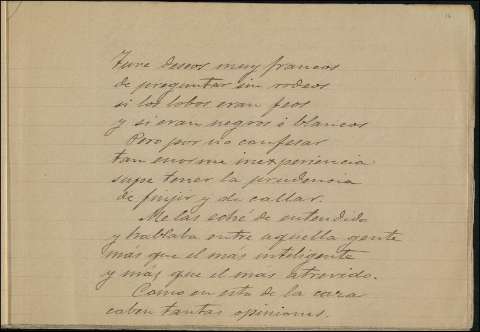 Tuve deseos muy francos
de preguntar sin rodeos
si los lobos eran feos
y si eran negros ó blancos
Pero por no confesar
tan enorme inexperiencia
supe tener la prudencia
de finjir y de callar.
Me las eché de entendido
y hablaba entre aquella gente
más que el más inteligente
y más que el mas atrevido.
Como en esto de la caza
caben tantas opiniones.